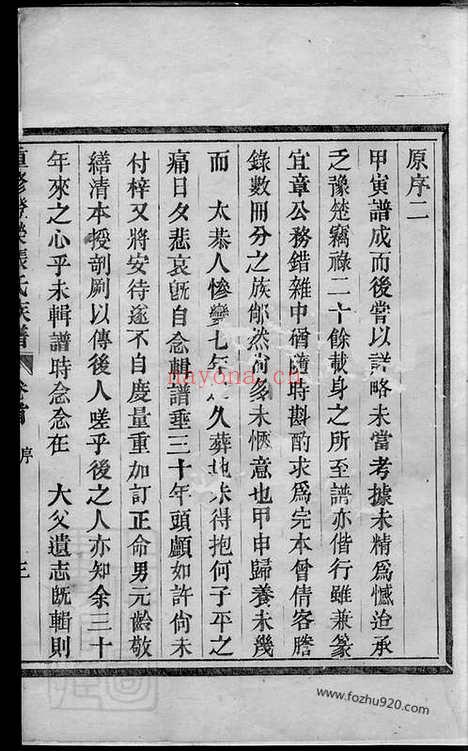 原序二
甲寅譜成而後嘗以詳略未當考據未精爲憾迨承
乏豫楚竊祿二十餘載身之所至譜亦偕行雖兼篆
宜章公務錯雜中猶隨時斟酌求爲完本曾倩客謄
錄數冊分之族邸然尚多未愜意也甲申歸養未幾
而　太恭人慘變七年久葬地未得抱何子平之
痛日夕悲哀既自念輯譜垂三十年頭顱如許尙未
付梓又將安待遂不自度量重加訂正命男元齡敬
繕清本授剞劂以傳後人嗟乎後之人亦知余三十
年來之心乎未輯譜時念念在　大父遺志既輯則
重修 張氏族譜 卷首 序 三
nayona.cn
www.fozhu920.com